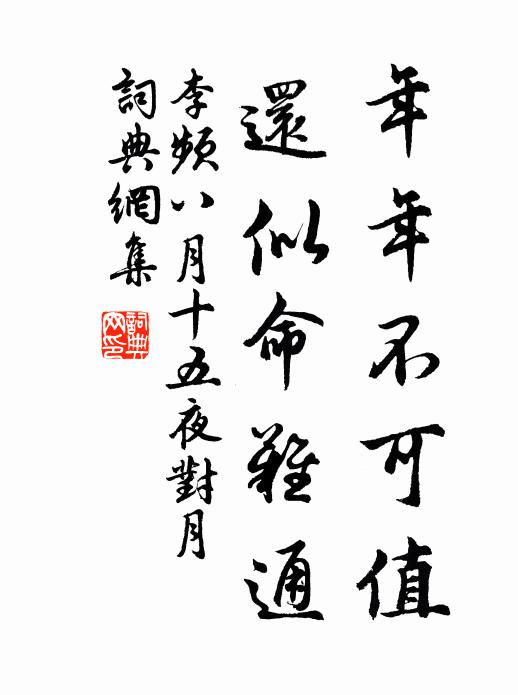 年年不可值
還似命難通
李頻八月十五夜對月
詞典網集
詞典網印